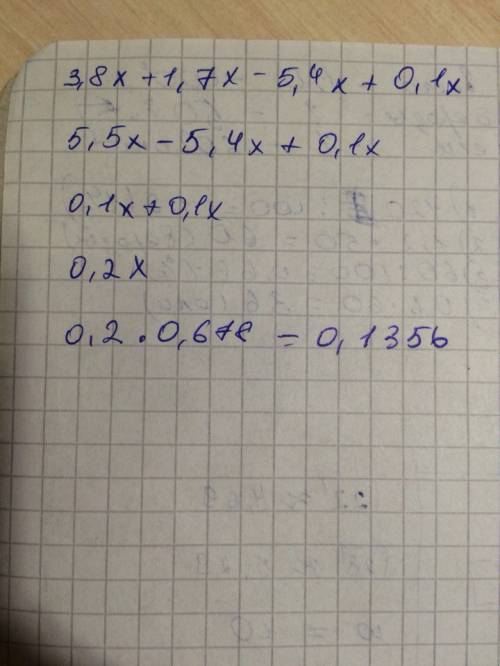 3,8x + 1,7x - 5,4x + 0,1x
5,5x - 5,4x + 0,1x
0,1x + 0,1x
0,2x
0,2 · 0,678 = 0,1356